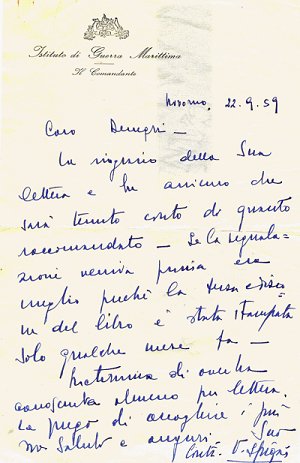 Istituto di Guerra Marittima
Il Comandante
Livorno, 22.9.59
Caro Denegri -
La ringrazio della Sua
lettera e La assicuro che
sarà tenuto conto di quanto
raccomandato - Se la segnala=
zione veniva prima era
meglio perché la terza edizio
ne del libro è stata stampata
solo qualche mese fa -
di averla
conosciuta almeno per lettera.
La prego di accogliere i più
vivi saluti e auguri. Suo